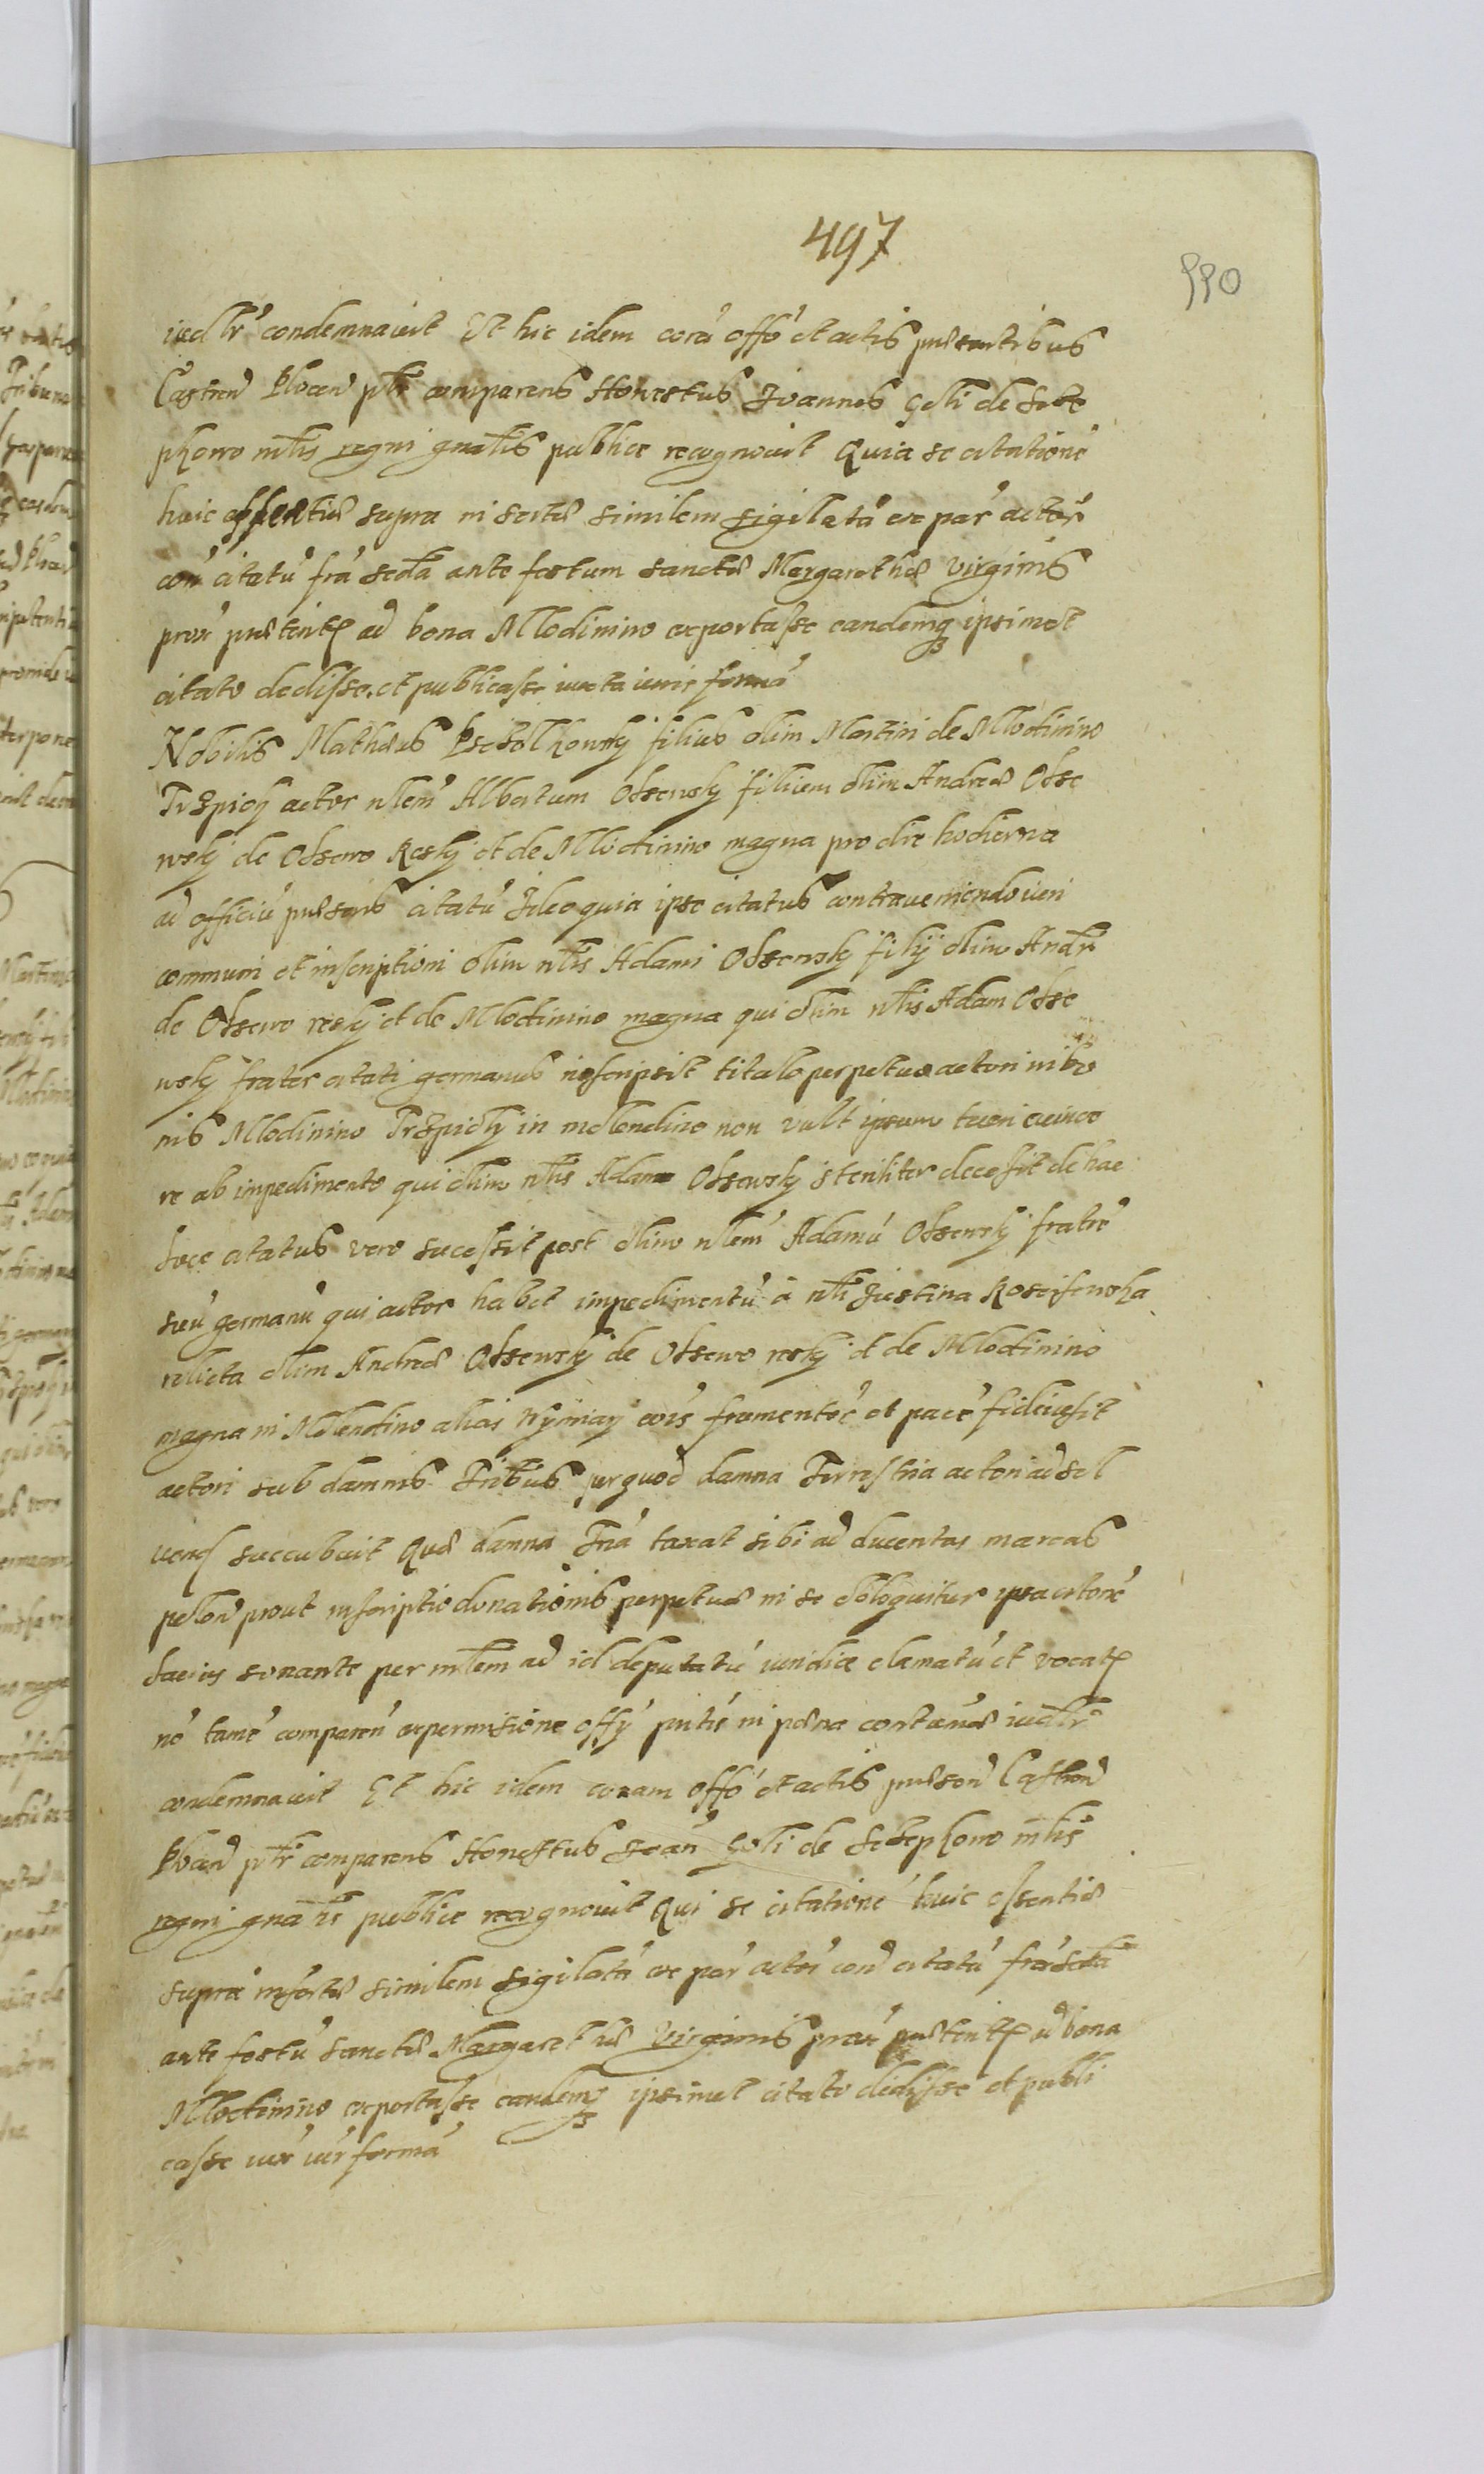 497
550
iudlr condemnavit Et hic idem corã offõ et actis præsentibus
Castren Plocen pltr comparens Honestus Joannes Goli de Sete
phovo mlis regni gnalis publice recognovit Quia se citationẽ
huic essentiæ supra insertæ similem sigilatã ex par actor
con citatũ frã scda ante festum sanctæ Margarethæ virginis
prox præterit ad bona Mlodinino exportasse eandemq ipsimet
citato dedisse et publicasse iuxta iuris formã
Nobilis Mathæus Psczolkowsky filius olim Martini de Mlodinino
Trzpioly actor nlem Albertum Obsewsky filium olim Andreæ Obse
wsky de Obsewo Resky et de Mlodinino magna pro die hodierna
ad officiũ præsens citatũ Ideo quia ipse citatus contraveniendo iuri
communi et inscriptioni olim nlis Adami Obsewsky filij olim Andr
de Obsewo resky et de Mlodinino magna qui olim nlis Adam Obse
wsky frater citati germanus inscripsit titulo perpetuo actori in bo
nis Mlodinino Trzpioly in molendino non vult ipsum tueri evince
re ab impedimento qui olim nlis Adam Obsewsky steriliter decessit de hac
luce citatus vero sucessit post olim nlem Adamũ Obsewsky fratrẽ
suũ germanũ qui actor habet impedimentũ a nli Justina Koscifewska
relicta olim Andreæ Obsewsky de Obsewo resky et de Mlodinino
magna in Molendino alias frumentor et pacẽ fideiussit
actori sub damnis Tribus per quod damna Terrestria actori ad sol
vend succubuit Quæ damna Tria taxat sibi ad ducentas marcas
pecun prout inscriptio donationis perpetuæ in se obloquitur ipsa
lacius sonante per mlem ad id deputatũ iuridice clamatũ et vocat
nõ tamẽ comparen ex permissione offy pntis in pœna contumac iudlr
condemnavit Et hic idem coram offõ et actis præsen Castren
Plocen pltr comparens Honestus Joan Goli de Setephovo mlis
regni gnalis publice recognovit Qui se citationẽ huic essentiæ
supra insertæ similem sigilatã ex par actor con citatũ frã scda
ante festũ sanctæ Margarethæ Virginis prox præterit ad bona
Mlodinino exportasse eandemq ipsimet citato dedisse et publi
casse iux iur formã